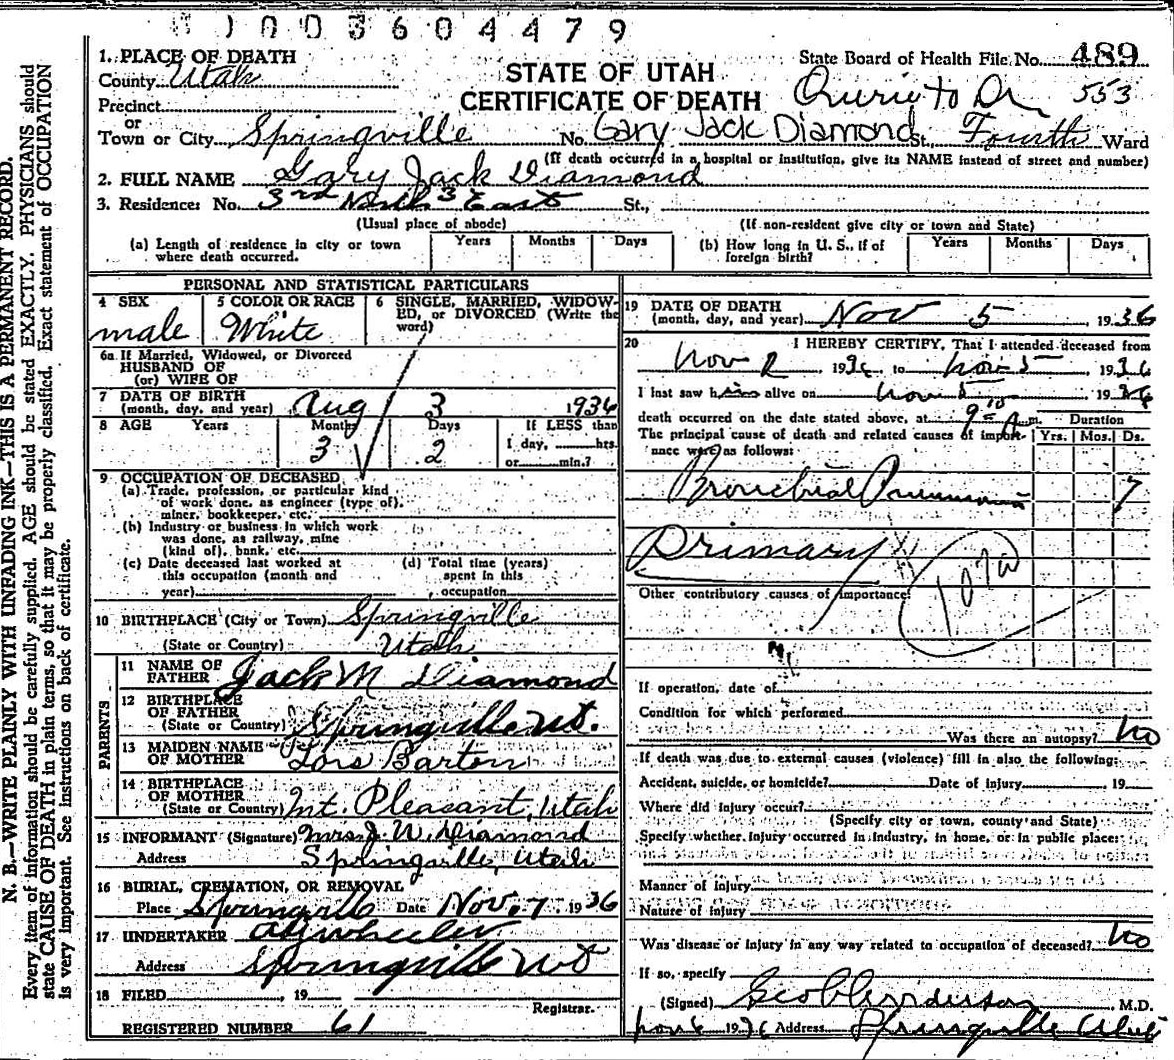 1003604479
1. PLACE OF DEATH
State Board of Health File No. 489
County Utah
STATE OF UTAH
Precinct
CERTIFICATE OF DEATH
to Dr 553
or
Town or City Springville No. Gary Jack Diamond St., Fourth Ward
(If death occurred in a hospital or institution, give its NAME instead of street and number)
2. FULL NAME Gary Jack Diamond
3. Residence: No. 3rd North 3 East St.,
(Usual place of abode)
(If non-resident give city or town and State)
(a) Length of residence in city or town where death occurred. Years Months Days
(b) How long in U. S., if of foreign birth? Years Months Days
PERSONAL AND STATISTICAL PARTICULARS
4 SEX
male
5 COLOR OR RACE
White
6 SINGLE, MARRIED, WIDOW-
ED, or DIVORCED (Write the
word)
6a If Married, Widowed, or Divorced
HUSBAND OF
(or) WIFE OF
7 DATE OF BIRTH
(month, day, and year) Aug 3 1936
8 AGE Years Months Days If LESS than
3 2 1 day, hrs.
or min.?
9 OCCUPATION OF DECEASED
(a) Trade, profession, or particular kind
of work done, as engineer (type of),
miner, bookkeeper, etc.
(b) Industry or business in which work
was done, as railway, mine
(kind of), bank, etc.
(c) Date deceased last worked at
this occupation (month and
year)
(d) Total time (years)
spent in this
occupation
10 BIRTHPLACE (City or Town) Springville
(State or Country) Utah
PARENTS
11 NAME OF
FATHER Jack M Diamond
12 BIRTHPLACE
OF FATHER
(State or Country) Springville Ut.
13 MAIDEN NAME
OF MOTHER Lois Barton
14 BIRTHPLACE
OF MOTHER
(State or Country) Mt. Pleasant, Utah
15 INFORMANT (Signature) Mrs J. W. Diamond
Address Springville, Utah
16 BURIAL, CREMATION, OR REMOVAL
Place Springville Date Nov. 7 1936
17 UNDERTAKER Wheeler
Address Springville Ut
18 FILED , 19
Registrar.
REGISTERED NUMBER 61
19 DATE OF DEATH
(month, day, and year) Nov 5 , 1936
20 I HEREBY CERTIFY, That I attended deceased from
Nov 2 , 1936 to Nov 5 , 1936
I last saw him alive on Nov 5 , 1936
death occurred on the date stated above, at 9 10 A m.
Duration
The principal cause of death and related causes of import-
ance were as follows:
Yrs. Mos. Ds.
Bronchial Pneumonia 7
Primary
107a
Other contributory causes of importance:
If operation, date of
Condition for which performed
Was there an autopsy? No
If death was due to external causes (violence) fill in also the following:
Accident, suicide, or homicide? Date of injury , 19
Where did injury occur?
(Specify city or town, county and State)
Specify whether injury occurred in industry, in home, or in public place:
Manner of injury
Nature of injury
Was disease or injury in any way related to occupation of deceased? No
If so, specify
(Signed) Geo Anderson , M.D.
Nov 6 1936 Address Springville Utah
N. B.—WRITE PLAINLY WITH UNFADING INK—THIS IS A PERMANENT RECORD.
Every item of information should be carefully supplied. AGE should be stated EXACTLY. PHYSICIANS should
state CAUSE OF DEATH in plain terms, so that it may be properly classified. Exact statement of OCCUPATION
is very important. See instructions on back of certificate.